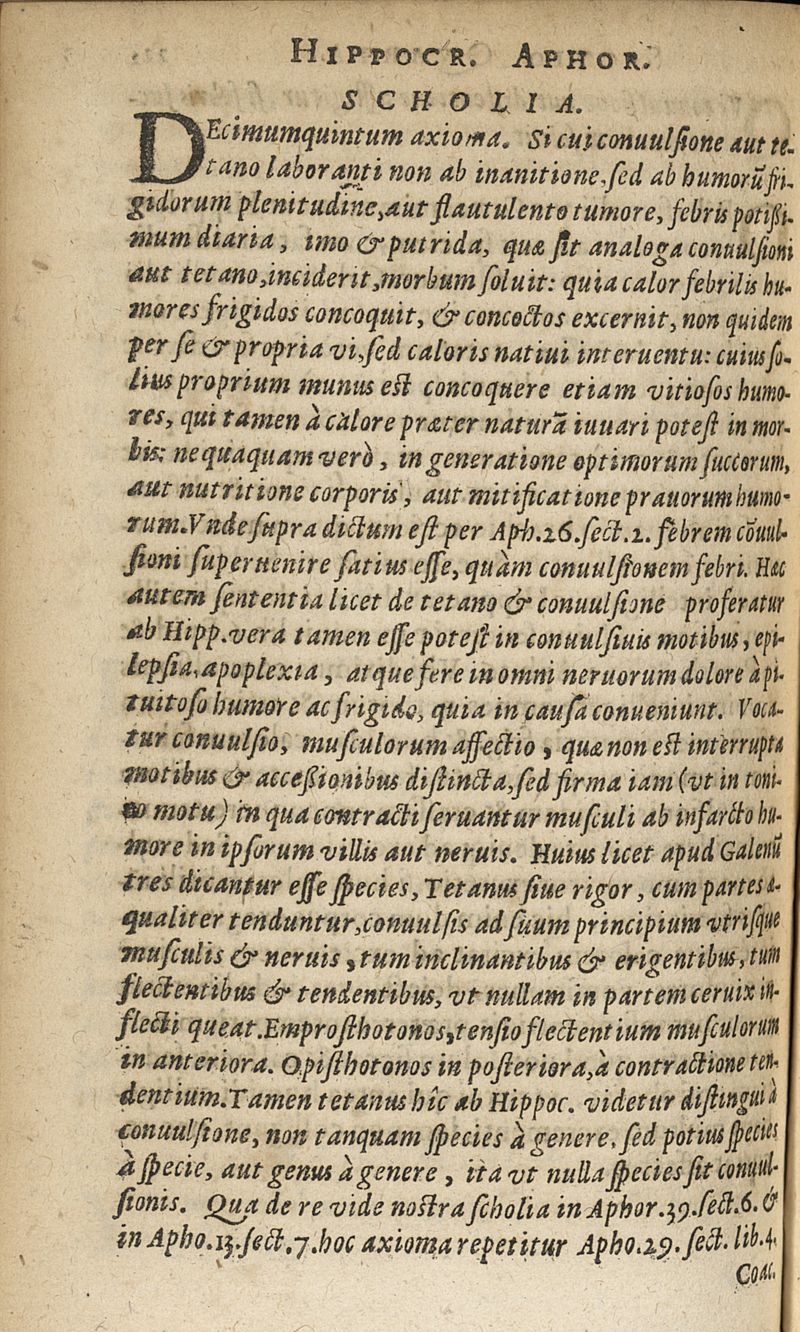 HIPPOCR. APHOR.
SCHOLIA.
DEcimumquintum axioma. Si cui conuulsione aut te-
tano laboranti non ab inanitione, sed ab humorũ fri-
gidorum plenitudine, aut flautulento tumore, febris potißi-
mum diaria, imo & putrida, quæ sit analoga conuulsioni
aut tetano, inciderit, morbum soluit: quia calor febrilis hu-
mores frigidos concoquit, & concoctos excernit, non quidem
per se & propria vi, sed caloris natiui interuentu: cuius so-
lius proprium munus est concoquere etiam vitiosos humo-
res, qui tamen à calore præter naturã iuuari potest in mor-
bis: nequaquam verò, in generatione optimorum succorum,
aut nutritione corporis, aut mitificatione prauorum humo-
rum. Vnde supra dictum est per Aph. 26. sect. 2. febrem cõuul-
sioni superuenire satius esse, quàm conuulsionem febri. Hæc
autem sententia licet de tetano & conuulsione proferatur
ab Hipp. vera tamen esse potest in conuulsiuis motibus, epi-
lepsia, apoplexia, atque fere in omni neruorum dolore à pi-
tuitoso humore ac frigido, quia in causa conueniunt. Voca-
tur conuulsio, musculorum affectio, quæ non est interrupta
motibus & acceßionibus distincta, sed firma iam (vt in toni-
co motu) in qua contracti seruantur musculi ab infarcto hu-
more in ipsorum villis aut neruis. Huius licet apud Galenũ
tres dicantur esse species, Tetanus siue rigor, cum partes æ-
qualiter tenduntur, conuulsis ad suum principium vtrisque
musculis & neruis, tum inclinantibus & erigentibus, tum
flectentibus & tendentibus, vt nullam in partem ceruix in-
flecti queat. Emprosthotonos, tensio flectentium musculorum
in anteriora. Opisthotonos in posteriora, à contractione ten-
dentium. Tamen tetanus hîc ab Hippoc. videtur distingui à
conuulsione, non tanquam species à genere, sed potius species
à specie, aut genus à genere, ita vt nulla species sit conuul-
sionis. Qua de re vide nostra scholia in Aphor. 39. sect. 6. &
in Apho. 13. sect. 7. hoc axioma repetitur Apho. 29. sect. lib. 4.
Coac.